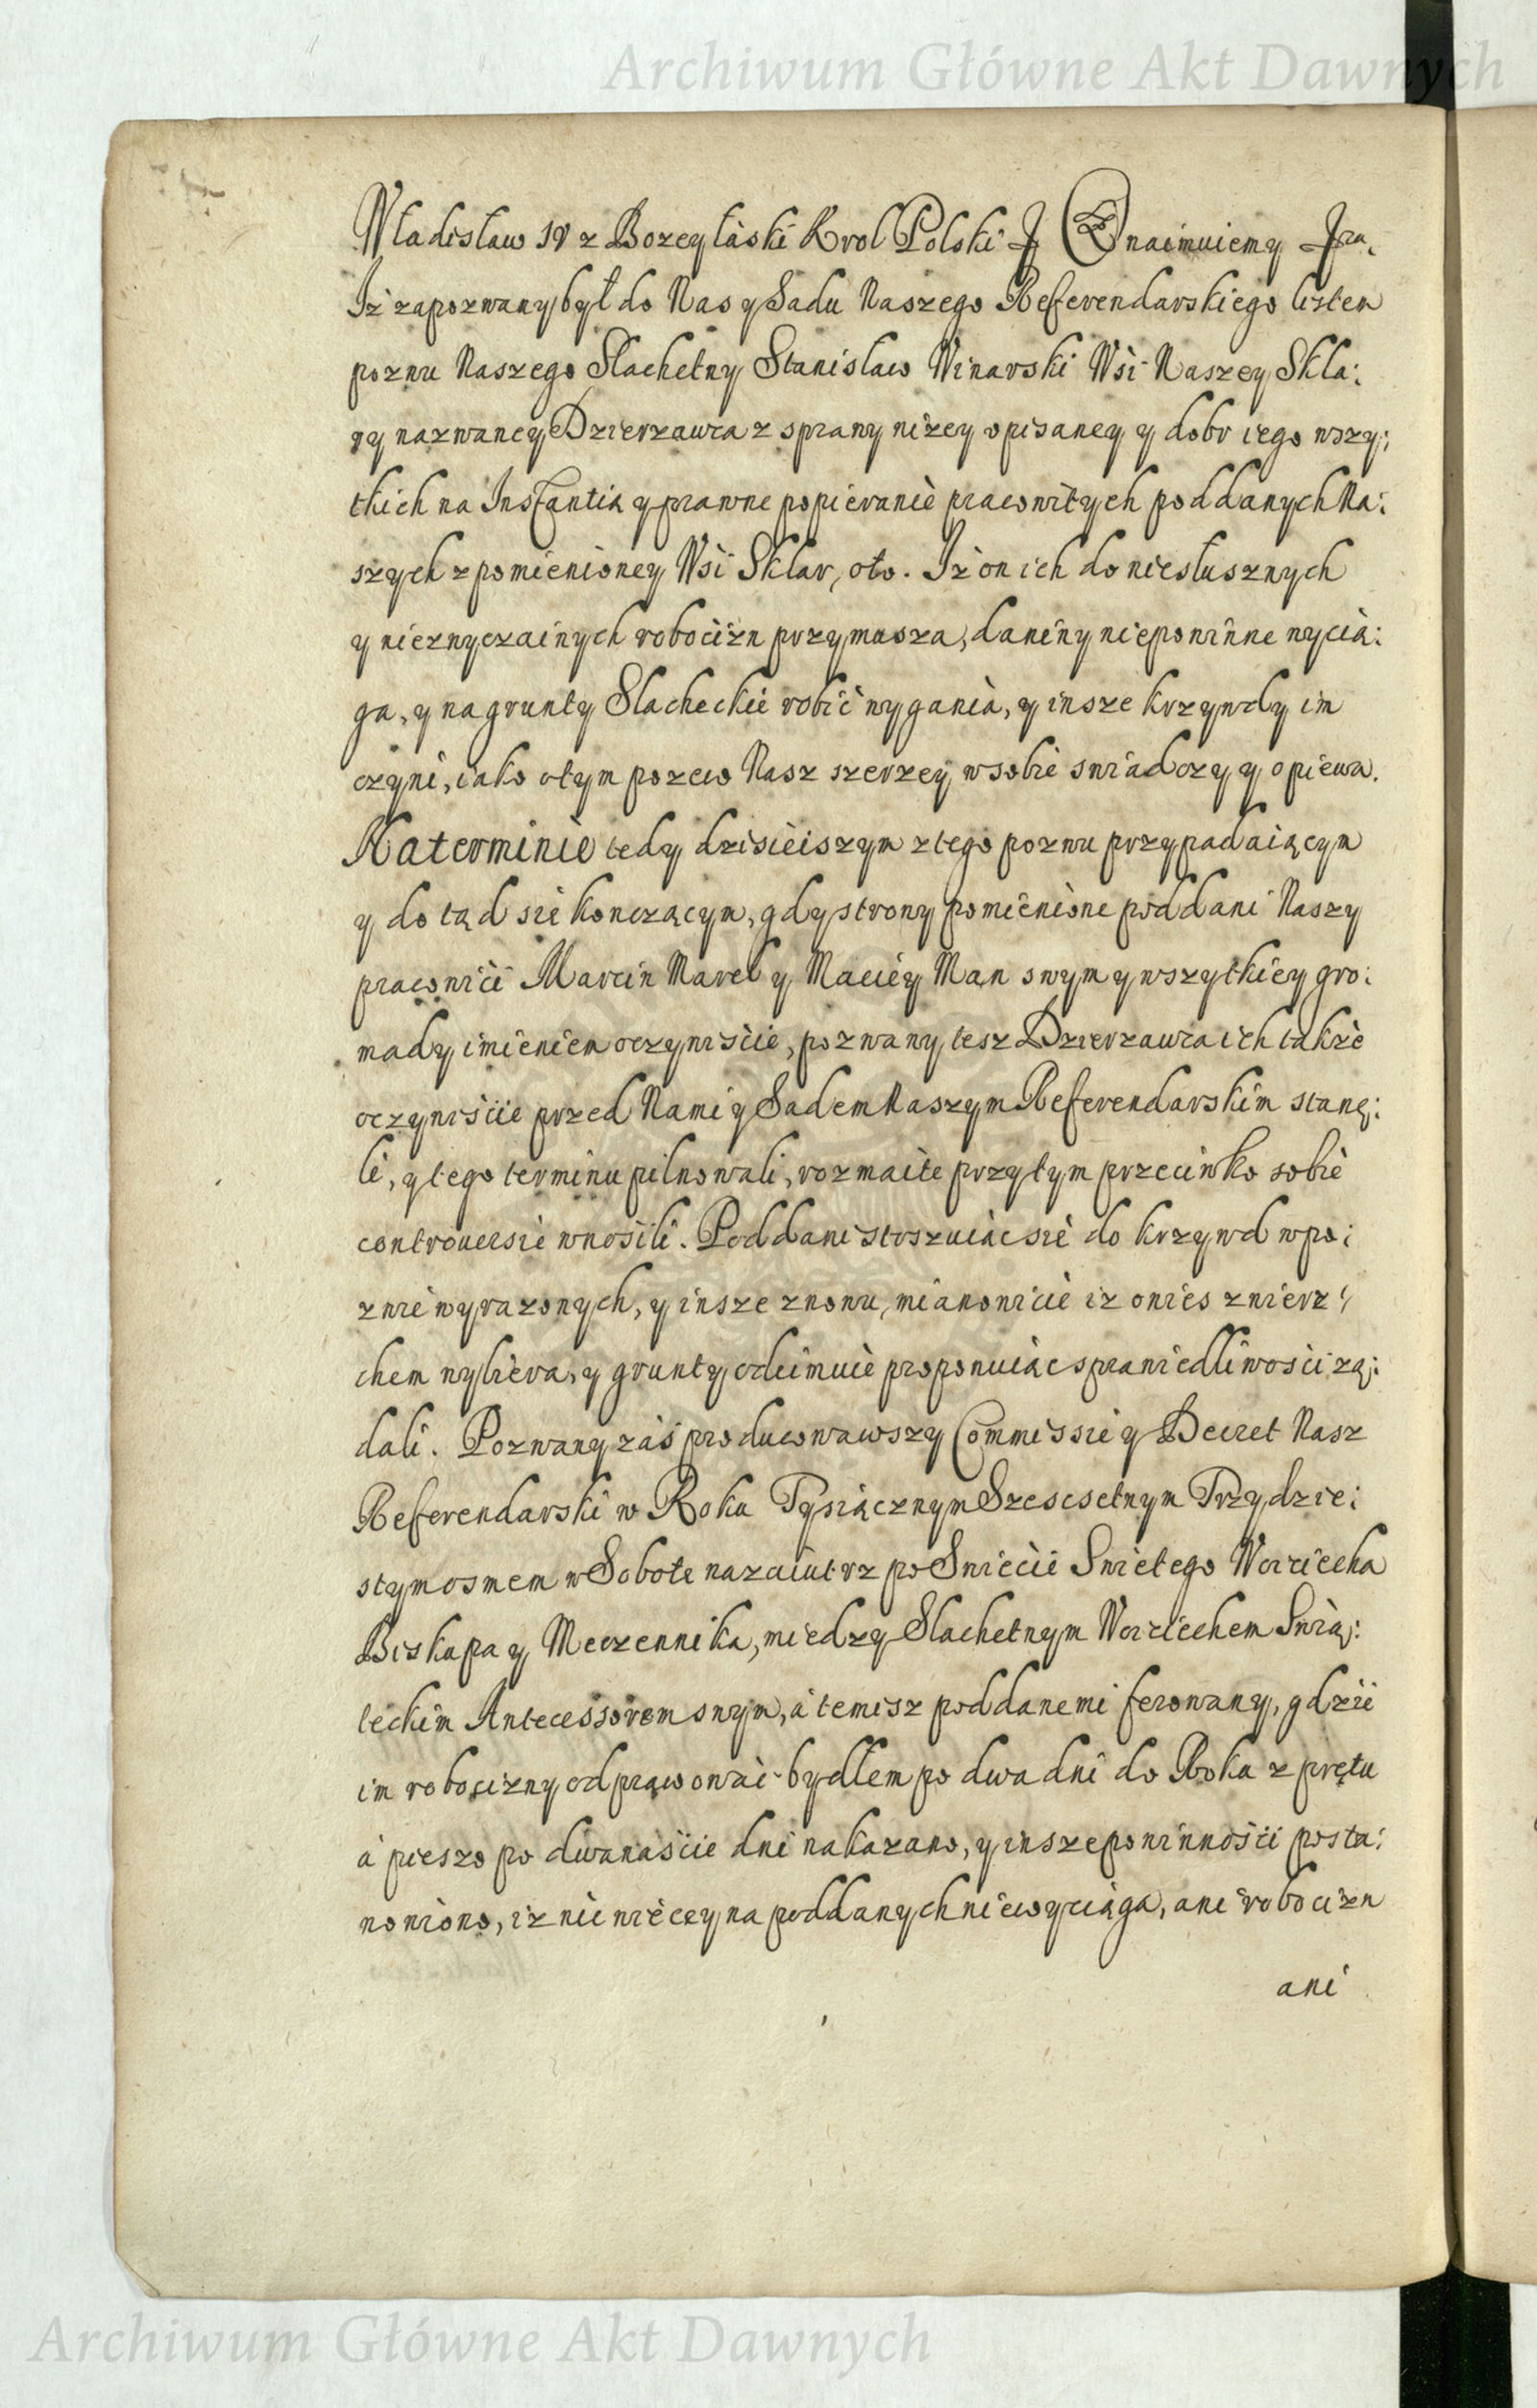 Archiwum Główne Akt Dawnych
Władisław IV z Bozey łàski Krol Polski Znaimuiemy
Iż zapozwany był do Nas y Sadu Naszego Referendarskiego listem
pozwu Naszego Slachetny Stanisław Winarski Wsi Naszey Skla:
ry nazwaney Dzierzawca z sprawy niżey opisaney y dobr iego wszy:
tkich na Instantią y prawne popieranie pracowitych poddanych Na:
szych z pomienioney Wsi Sklar, oto. Iż on ich do niesłusznych
y niezwyczainych robocizn przymusza, daniny niepowinne wycià:
ga, y na grunty Slacheckie robić wygania, y insze krzywdy im
czyni, iako otym pozew Nasz szerzey w sobie swiadczy y opiewa.
Na terminie tedy dzisieiszym z tego pozwu przypadaiącym
y do tąd sie konczącym, gdy strony pomienione poddani Naszy
pracowici Marcin Marel y Maciey Man swym y wszytkiey gro:
mady imieniem oczywiscie, pozwany tesz Dzierzawca ich także
oczywiscie przed Nami y Sadem Naszym Referendarskim stanę:
li, y tego terminu pilnowali, rozmaite przytym przeciwko sobie
controuersie wnosili. Poddani stoszuiàc sie do krzywd w po:
zwie wyrazonych, y insze znowu, mianowicie iz owies z wierz:
chem wybiera, y grunty odeimuie proponuiàc sprawiedliwości zą:
dali. Pozwany záś producowawszy Commissie y Decret Nasz
Referendarski w Roku Tysiącznym Szescsetnym Trzydzie:
stym osmem w Sobote nazaiutrz po Swiecie Swietego Woiciecha
Biskupa y Meczennika, miedzy Slachetnym Woiciechem Swią:
teckim Antecessorem swym, á temisz poddanemi ferowany, gdzie
im robocizny odprawować bydłem po dwa dni do Roku z prętu
á pieszo po dwanaście dni nakazano, y insze powinności posta:
nowiono, iz nic wiecey na poddanych nie wyciąga, ani robocizn
ani
Archiwum Główne Akt Dawnych